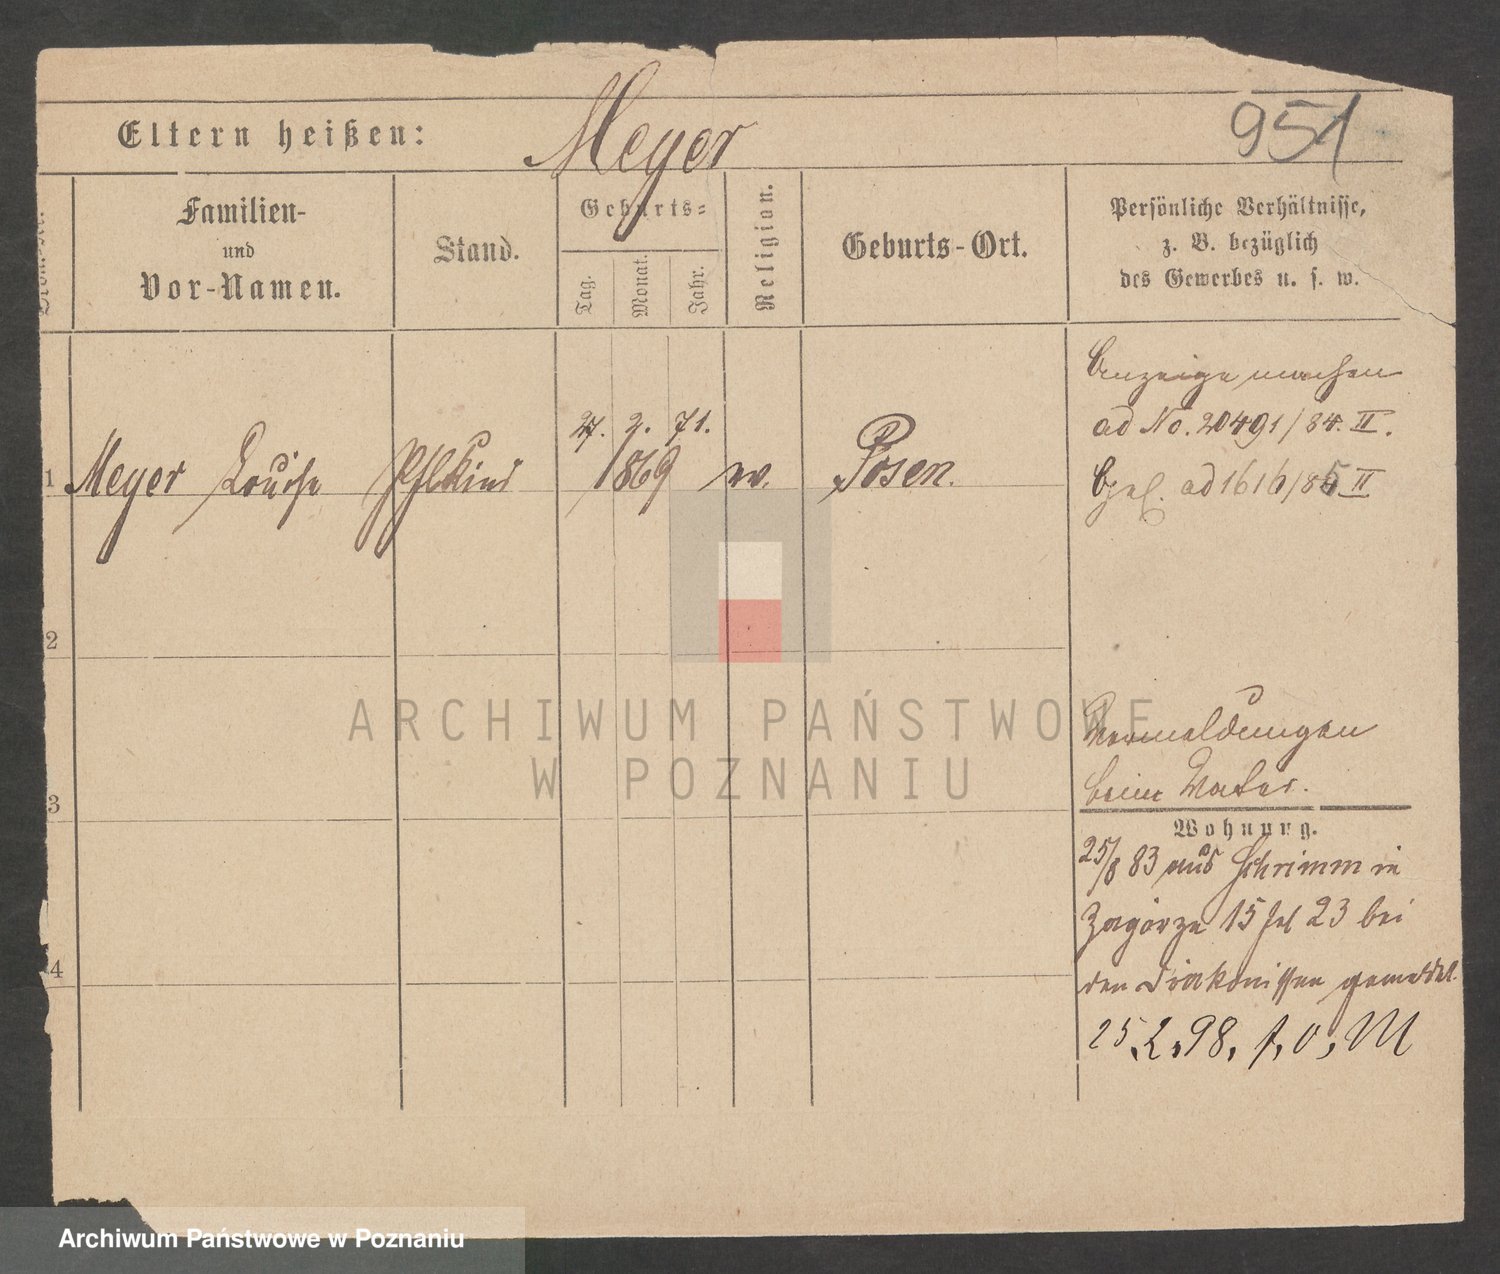 Eltern heißen: Meyer
951
Ordn.-Nr.
Familien-
und
Vor-Namen.
Stand.
Geburts-
Tag.
Monat.
Jahr.
Religion.
Geburts-Ort.
Persönliche Verhältnisse,
z. B. bezüglich
des Gewerbes u. s. w.
27. 2. 71.
1 Meyer Louise Pflkind 1869 w. Posen.
Anzeige machen
ad No. 20491/84. II.
ad 1616/85 II
2
3
4
Vermeldungen
beim Vater.
Wohnung.
25/8 83 aus Schrimm in
Zagórze 15 23 bei
den Diakonissen gemeldet
25.2.98. f. o. M
ARCHIWUM PAŃSTWOWE
W POZNANIU
Archiwum Państwowe w Poznaniu